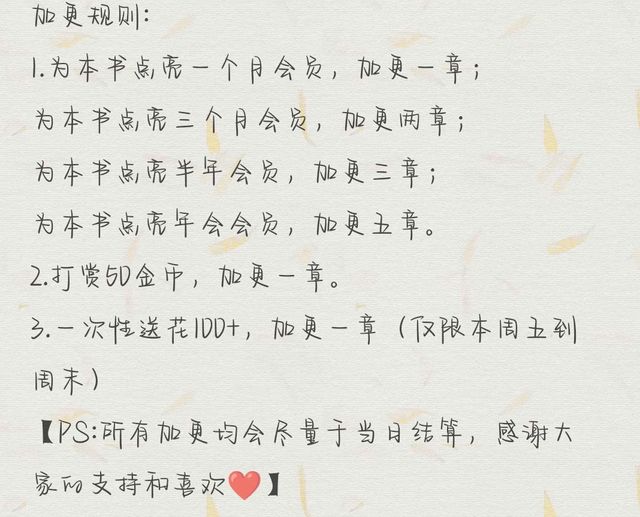 加更规则:
1.为本书点亮一个月会员，加更一章；
为本书点亮三个月会员，加更两章；
为本书点亮半年会员，加更三章；
为本书点亮年会会员，加更五章。
2.打赏50金币，加更一章。
3.一次性送花100+，加更一章（仅限本周五到
周末）
【PS:所有加更均会尽量于当日结算，感谢大
家的支持和喜欢❤️】